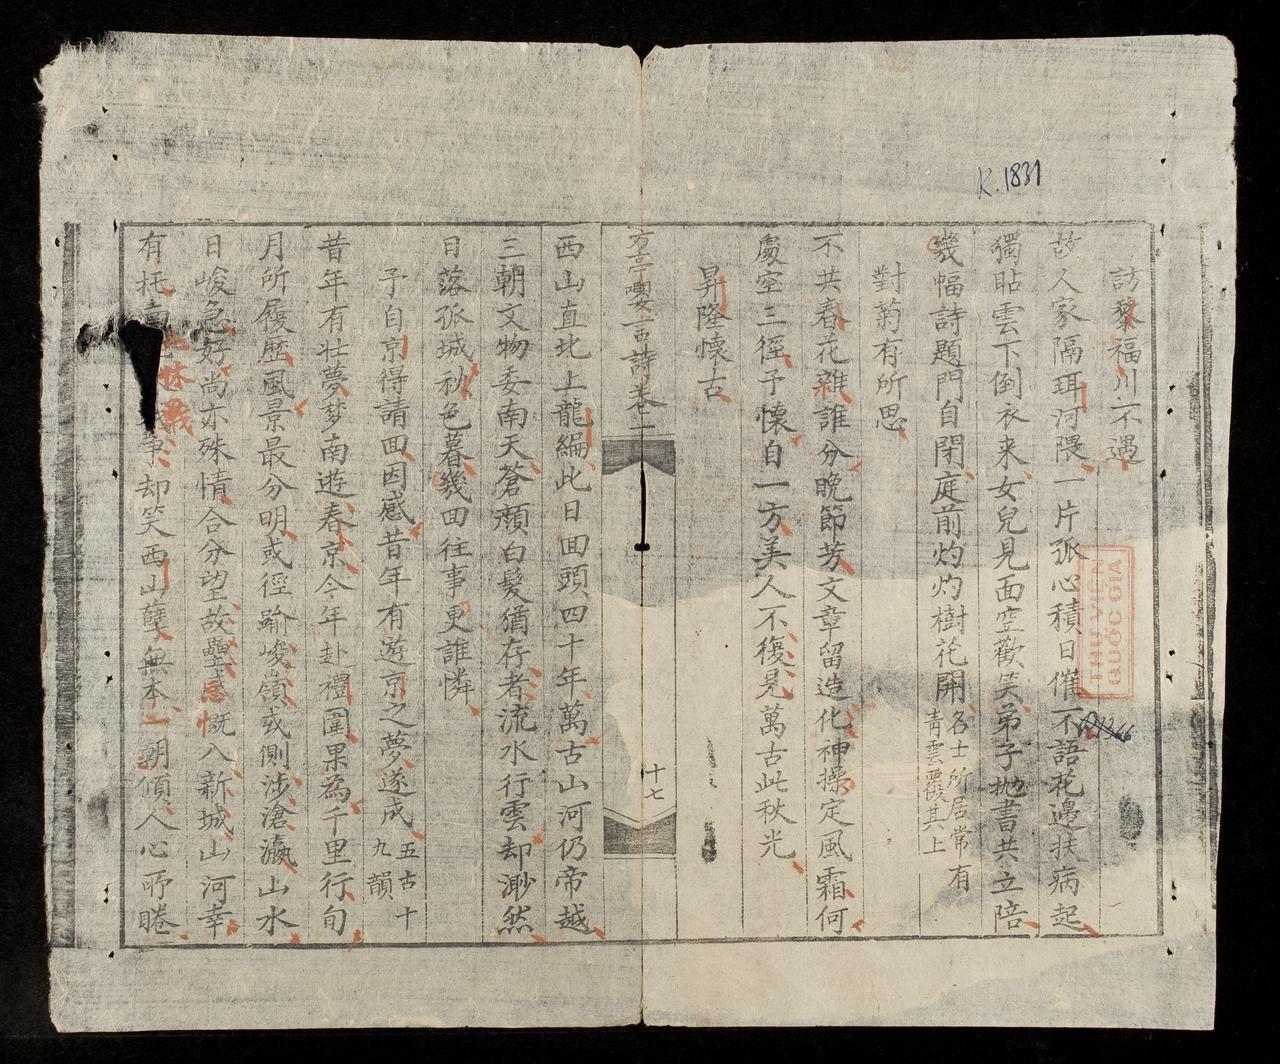 訪黎福川不遇
故人家隔珥河隈一片孤心積日催不語花邊扶病起
獨站雲下倒衣来女兒見面空歡笑弟子抛書共立陪
幾幅詩題門自閉庭前灼灼樹花開名士所居常有青雲覆其上
對菊有所思
不共春花雜誰分晩節芳文章留造化神操定風霜何
處空三徑予懷自一方美人不復見萬古此秋光
昇隆懷古
方亭嬰言詩卷二
十七
西山直北上龍編此日回頭四十年萬古山河仍帝越
三朝文物委南天蒼顔白髮猶存者流水行雲却渺然
日落孤城秋色暮幾回往事更誰憐
予自京得請回因感昔年有遊京之夢遂成五古十九韻
昔年有壮夢夢南遊春京今年赴禮圍果為千里行旬
月所履歴風景最分明或徑踰峻嶺或側涉滄瀛山水
日峻急好尚亦殊情合分望故壘感慨入新城山河幸
有托 爭却笑西山孽無本一朝傾人心所睠
K.1831
THƯ VIỆN
QUỐC GIA